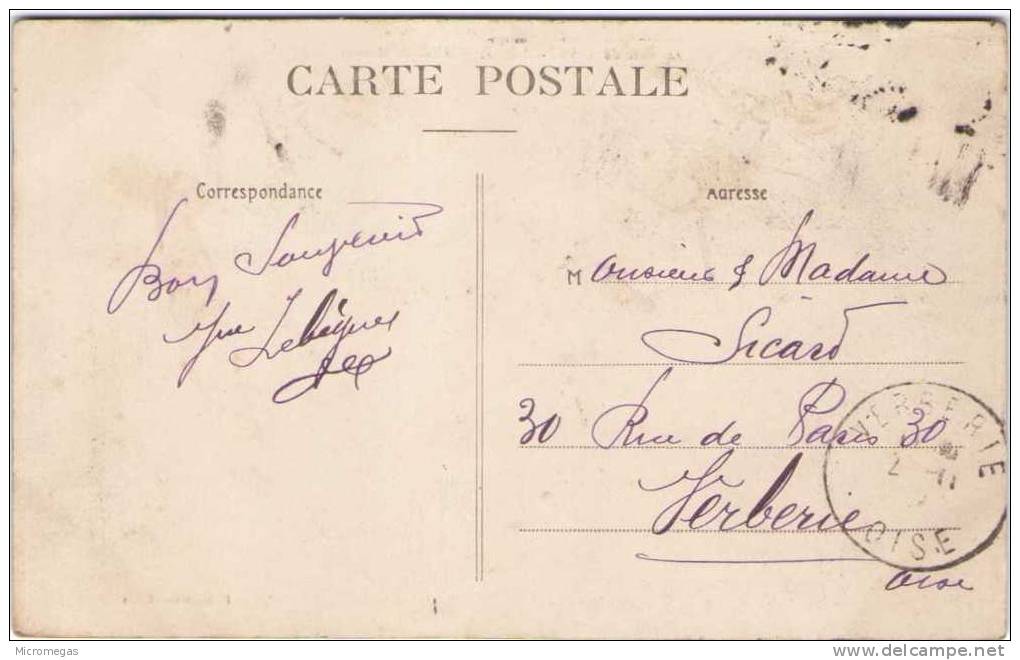 CARTE POSTALE
Correspondance
Bon Souvenir
Adresse
Monsieur & Madame
Sicard
30 Rue de Paris 30
Verberie
Oise
VERBERIE
OISE
Micromegas
www.delcampe.net